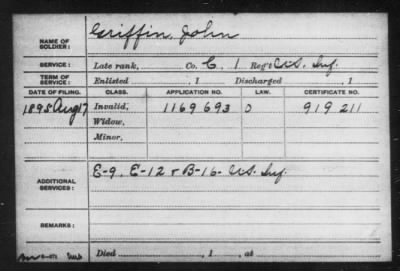 NAME OF SOLDIER: Griffin, John
SERVICE: Late rank, Co. C, 1 Reg't U.S. Inf.
TERM OF SERVICE: Enlisted , 1 Discharged , 1
DATE OF FILING. CLASS. APPLICATION NO. LAW. CERTIFICATE NO.
1895 Aug 17 Invalid, 1169693 O 919211
Widow,
Minor,
ADDITIONAL SERVICES: E-9, E-12 & B-16- U.S. Inf.
REMARKS:
Died , 1 , at